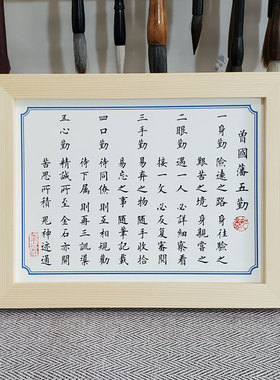 曾國藩五勤
一身勤 險遠之路 身往驗之
艱苦之境 身親當之
二眼勤 遇一人 必詳細察看
接一文 必反复審閱
三手勤 易棄之物 隨手收拾
易忘之事 隨筆記載
四口勤 待同僚 則互相規勸
待下屬 則再三訓導
五心勤 精誠所至 金石亦開
苦思所積 鬼神迹通